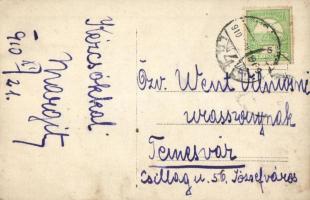 Kézcsókkal
Margit
910 VI/21.
910
Özv. Went Vilmosné
urasszonynak
Temesvár
Csillag u. 56. Józsefváros